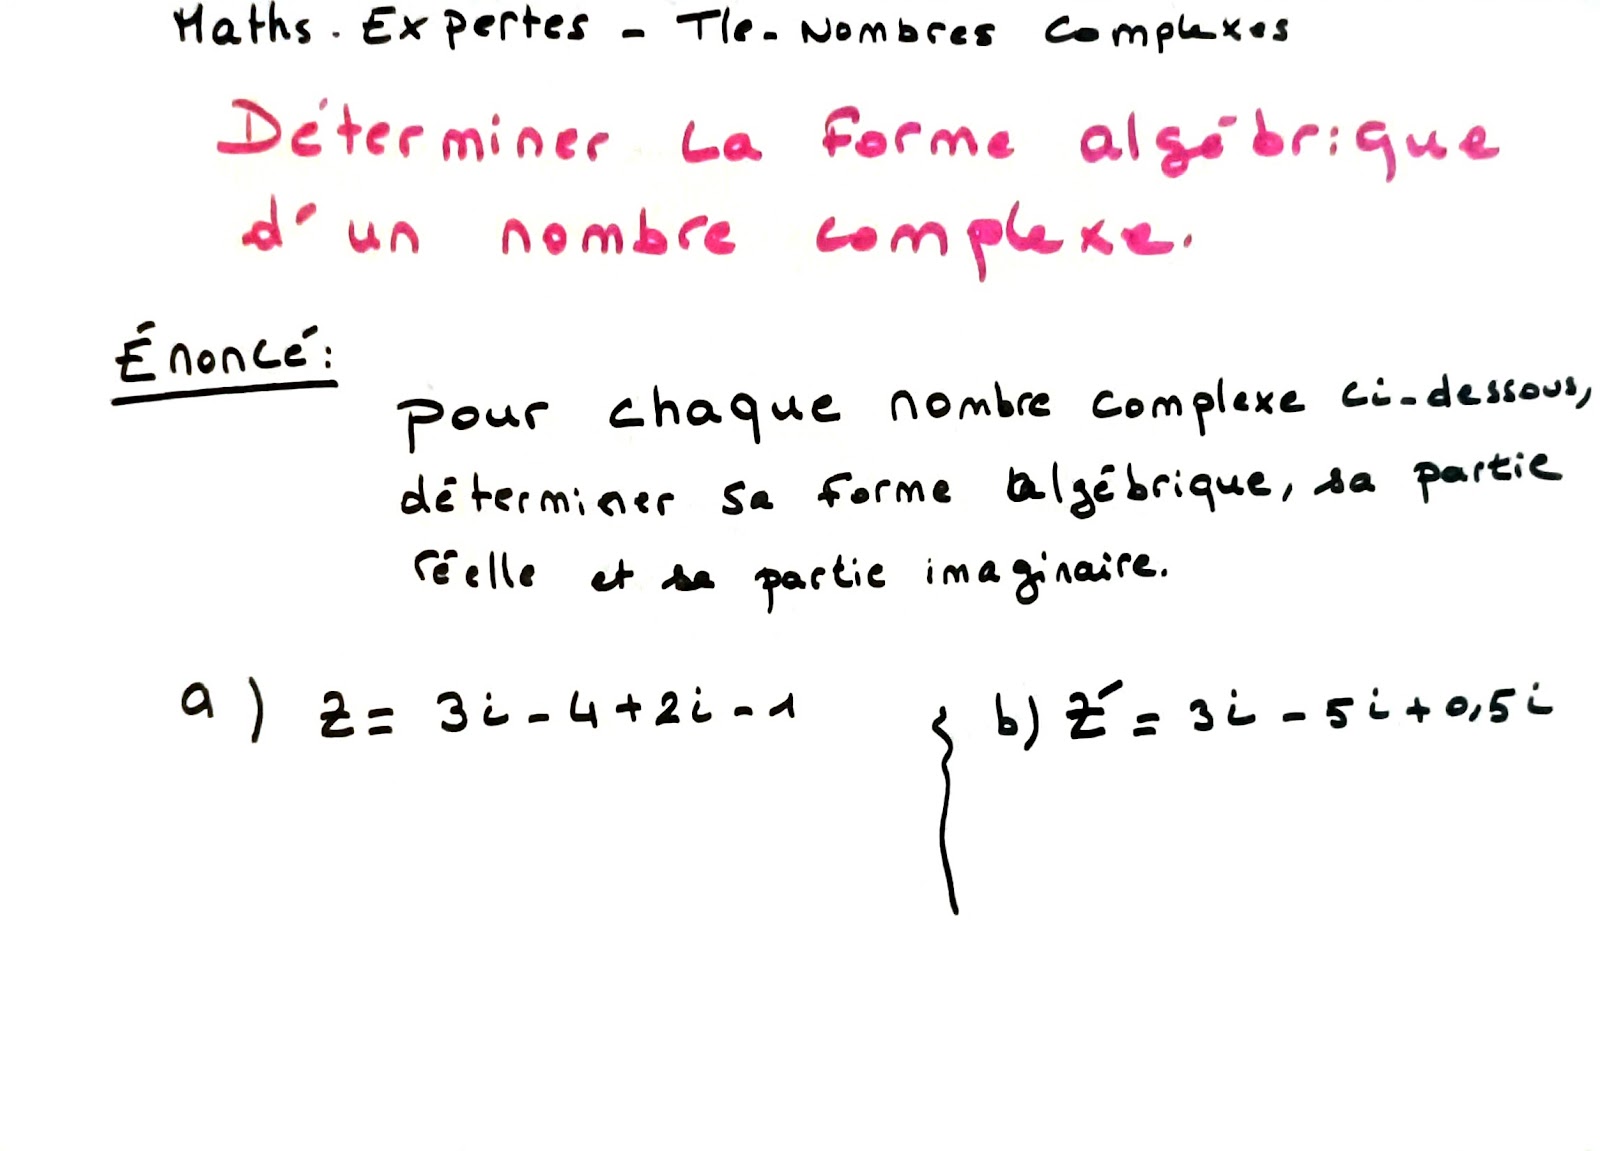 Maths. Expertes - Tle. Nombres complexes
Déterminer La forme algébrique
d'un nombre complexe.
Énoncé:
pour chaque nombre complexe ci-dessous,
déterminer sa forme algébrique, sa partie
réelle et sa partie imaginaire.
a) z = 3i - 4 + 2i - 1
b) z' = 3i - 5i + 0,5i